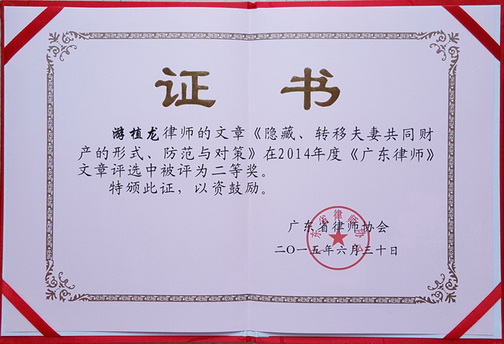 证书
游植龙律师的文章《隐藏、转移夫妻共同财
产的形式、防范与对策》在2014年度《广东律师》
文章评选中被评为二等奖。
特颁此证，以资鼓励。
广东省律师协会
二〇一五年六月三十日